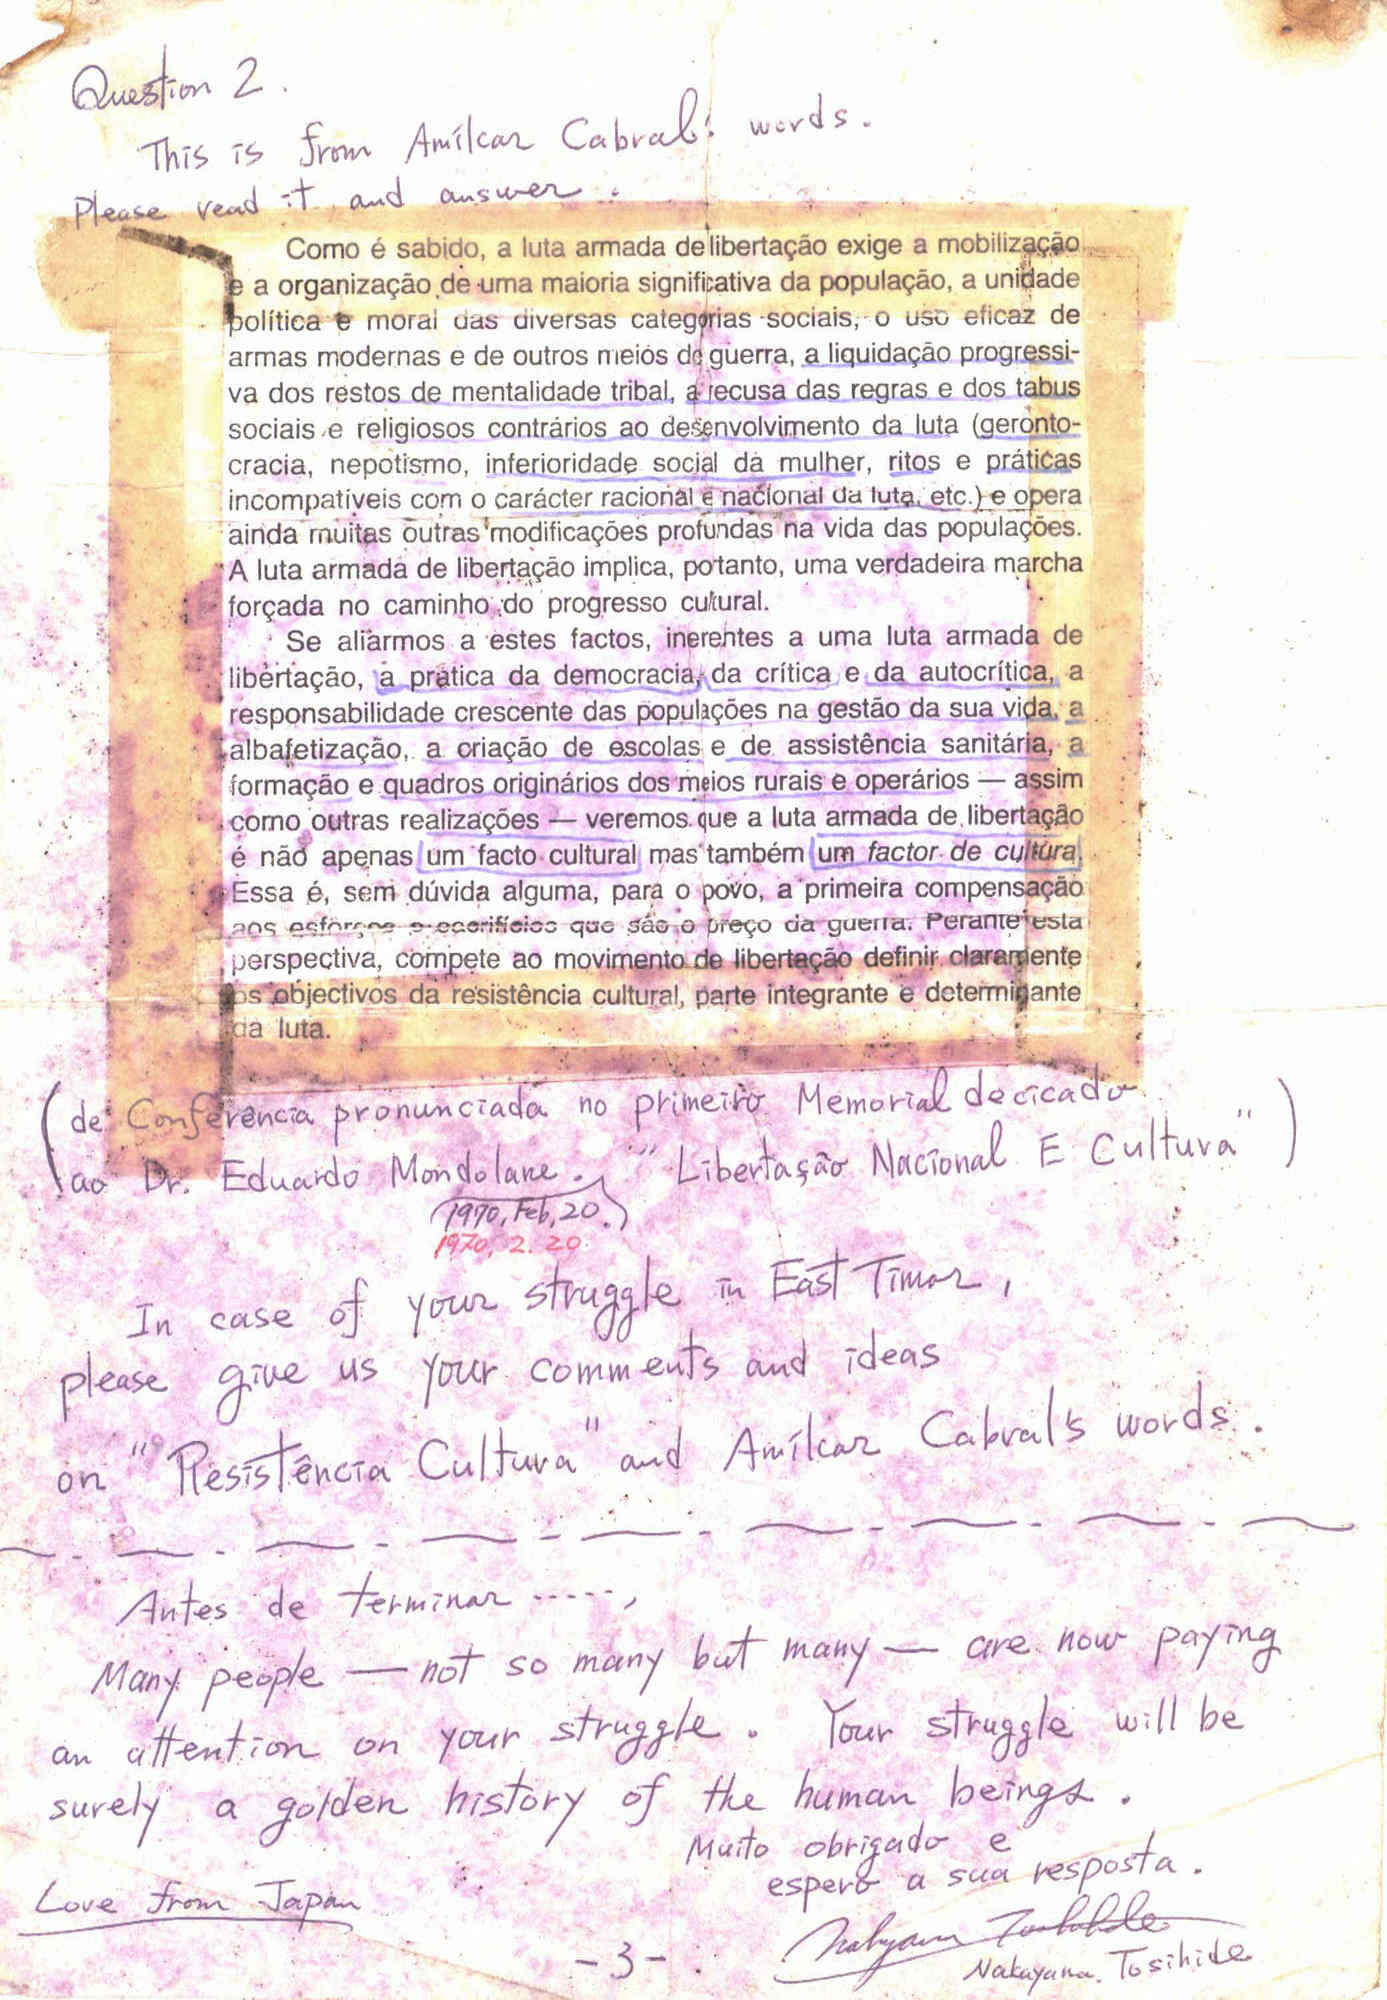 Question 2.
This is from Amílcar Cabral's words.
Please read it and answer.
Como é sabido, a luta armada de libertação exige a mobilização
e a organização de uma maioria significativa da população, a unidade
política e moral das diversas categorias sociais, o uso eficaz de
armas modernas e de outros meios de guerra, a liquidação progressi-
va dos restos de mentalidade tribal, a recusa das regras e dos tabus
sociais e religiosos contrários ao desenvolvimento da luta (geronto-
cracia, nepotismo, inferioridade social da mulher, ritos e práticas
incompatíveis com o carácter racional e nacional da luta, etc.) e opera
ainda muitas outras modificações profundas na vida das populações.
A luta armada de libertação implica, portanto, uma verdadeira marcha
forçada no caminho do progresso cultural.
Se aliarmos a estes factos, inerentes a uma luta armada de
libertação, a prática da democracia, da crítica e da autocrítica, a
responsabilidade crescente das populações na gestão da sua vida, a
albafetização, a criação de escolas e de assistência sanitária, a
formação e quadros originários dos meios rurais e operários — assim
como outras realizações — veremos que a luta armada de libertação
é não apenas um facto cultural mas também um factor de cultura.
Essa é, sem dúvida alguma, para o povo, a primeira compensação
aos esforços e sacrifícios que são o preço da guerra. Perante esta
perspectiva, compete ao movimento de libertação definir claramente
os objectivos da resistência cultural, parte integrante e determinante
da luta.
(de Conferência pronunciada no primeiro Memorial decicado
ao Dr. Eduardo Mondolane. "Libertação Nacional E Cultura")
(1970, Feb, 20.)
1970, 2. 20.
In case of your struggle in East Timor,
please give us your comments and ideas
on "Resistência Cultura" and Amílcar Cabral's words.
Antes de terminar .....,
Many people — not so many but many — are now paying
an attention on your struggle. Your struggle will be
surely a golden history of the human beings.
Muito obrigado e
espero a sua resposta.
Love from Japan
Nakayama. Tosihide
- 3 -